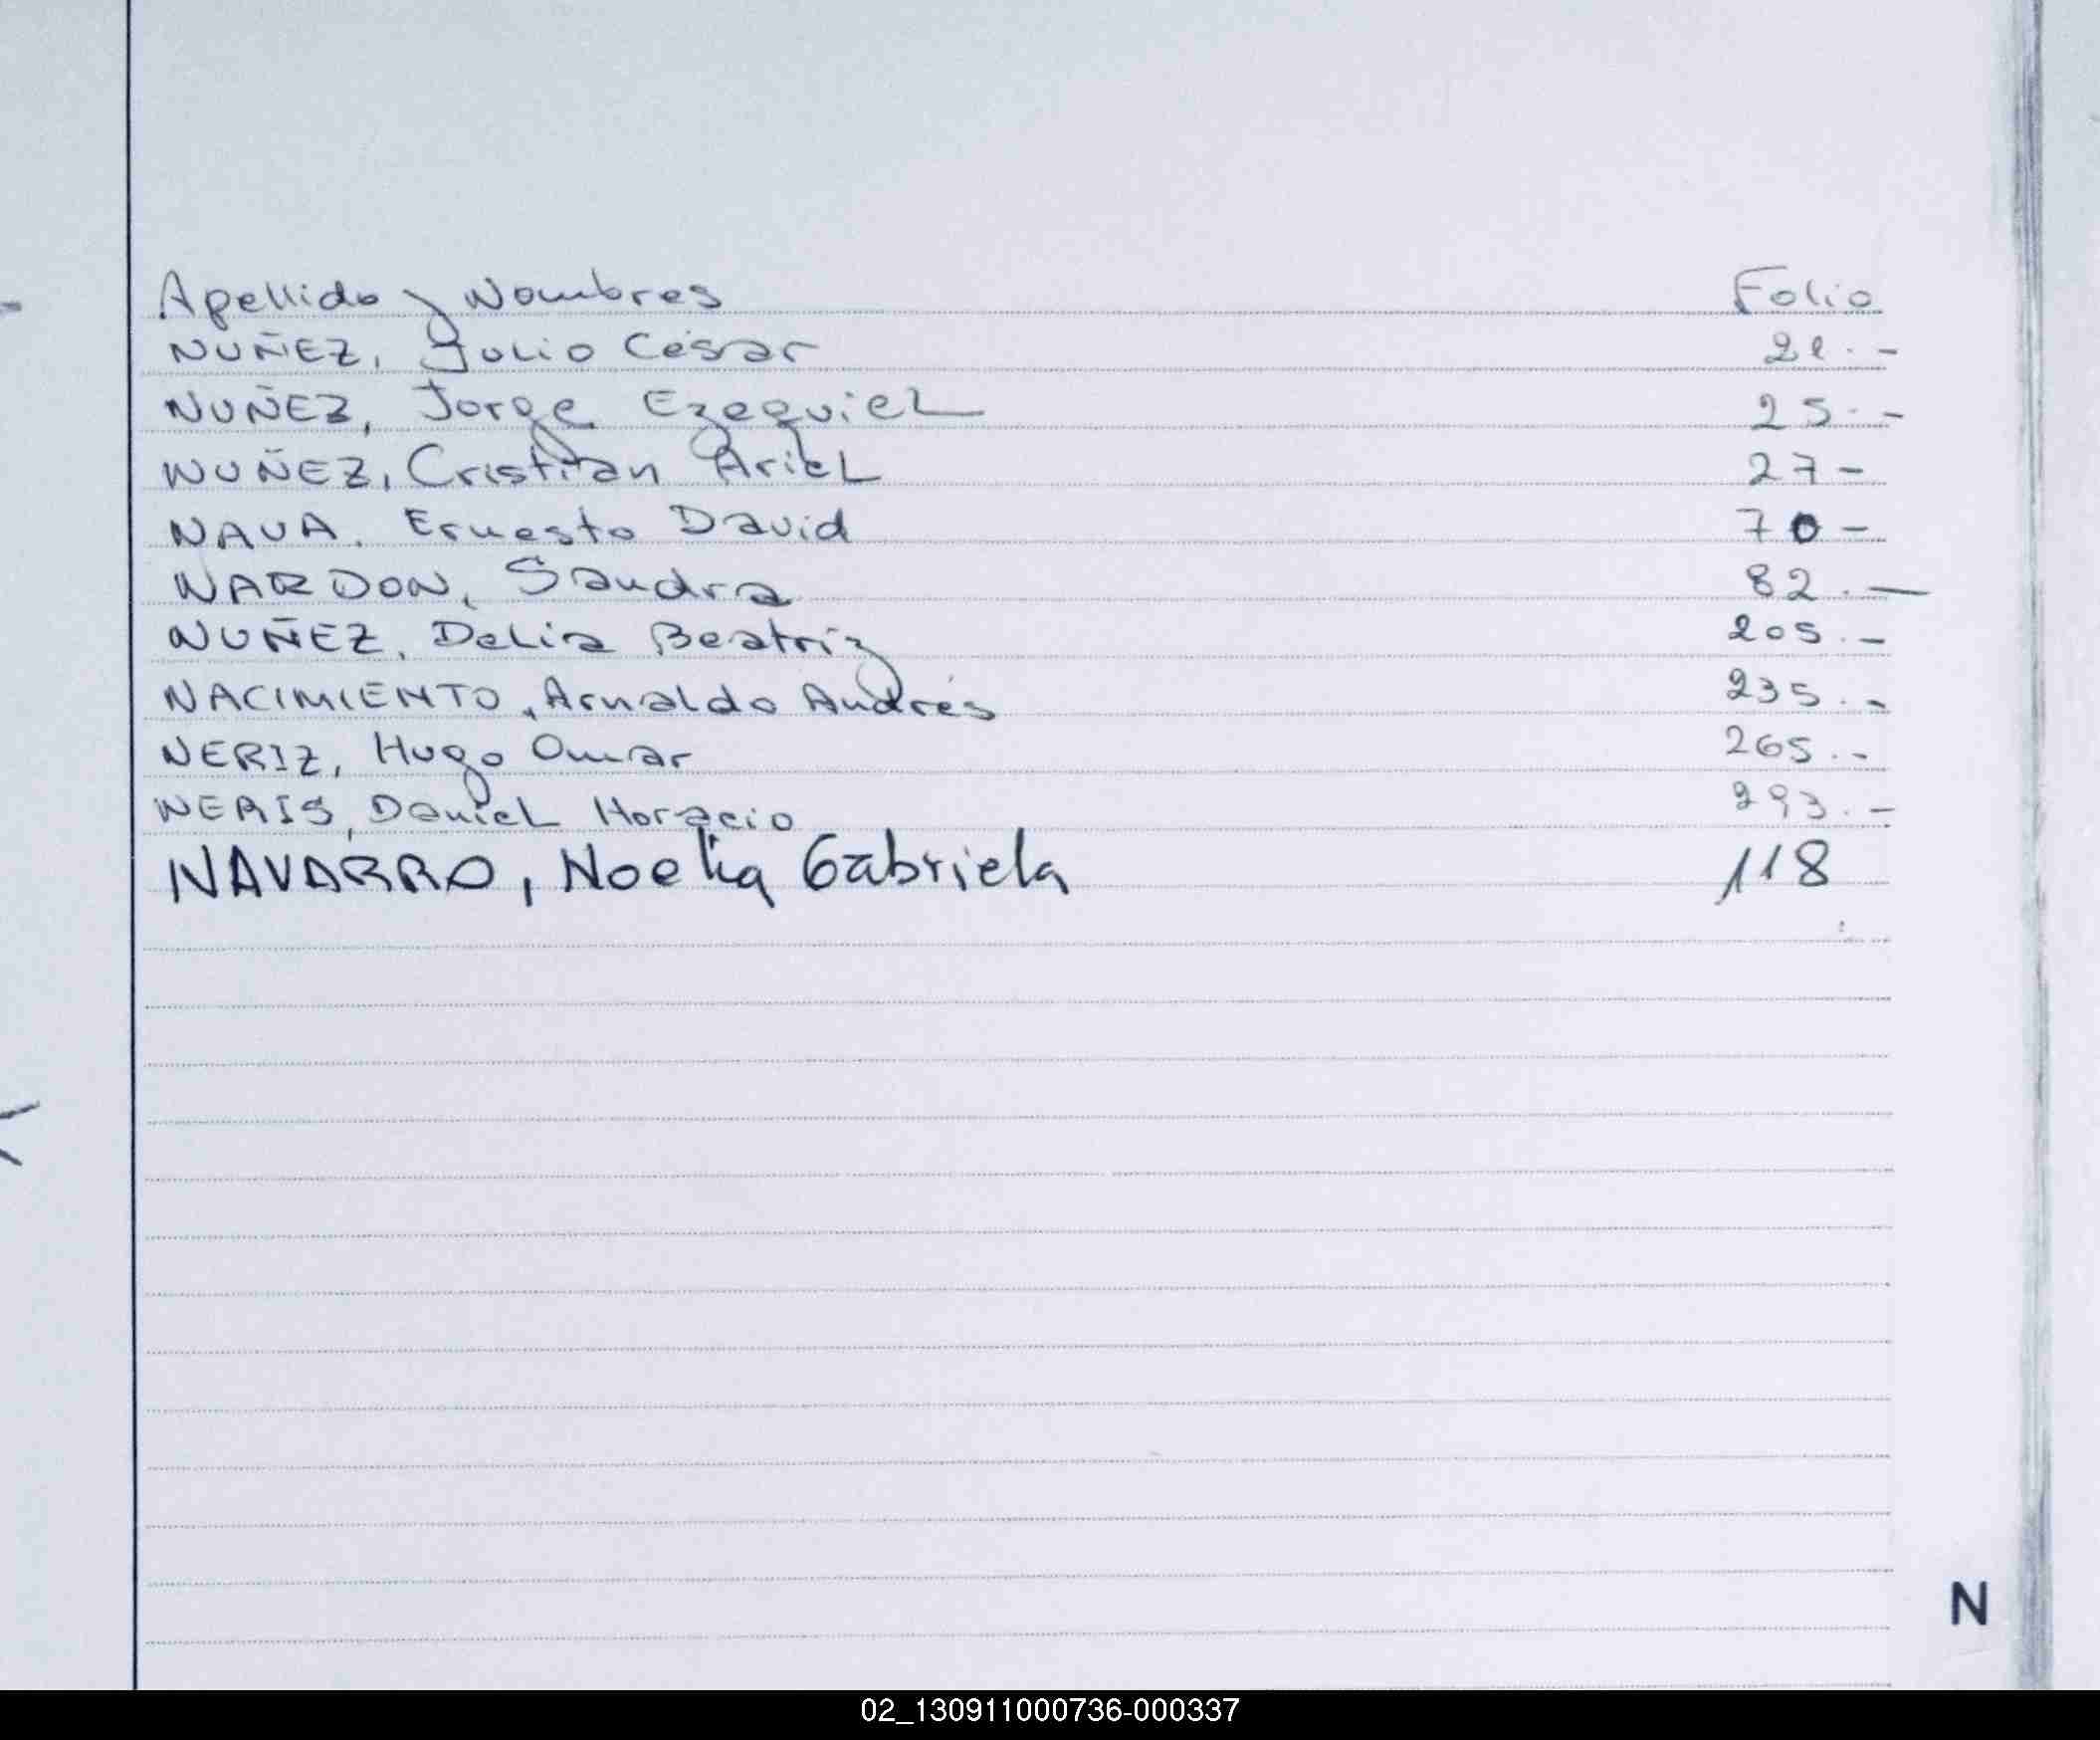 Apellido y Nombres Folio
NUÑEZ, Julio César 21.-
NUÑEZ, Jorge Ezequiel 25.-
NUÑEZ, Cristian Ariel 27-
NAVA. Ernesto David 70-
NARDON, Sandra 82.-
NUÑEZ, Delia Beatriz 205.-
NACIMIENTO, Arnaldo Andrés 235.-
NERIZ, Hugo Omar 265.-
NERIS, Daniel Horacio 293.-
NAVARRO, Noelia Gabriela 118
N
02_130911000736-000337